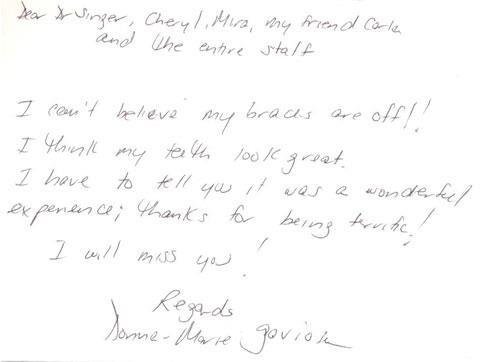 Dear Dr Singer, Cheryl, Mira, my friend Carla
and the entire staff
I can't believe my braces are off!!
I think my teeth look great.
I have to tell you it was a wonderful
experience; thanks for being terrific!
I will miss you!
Regards
Donna-Marie